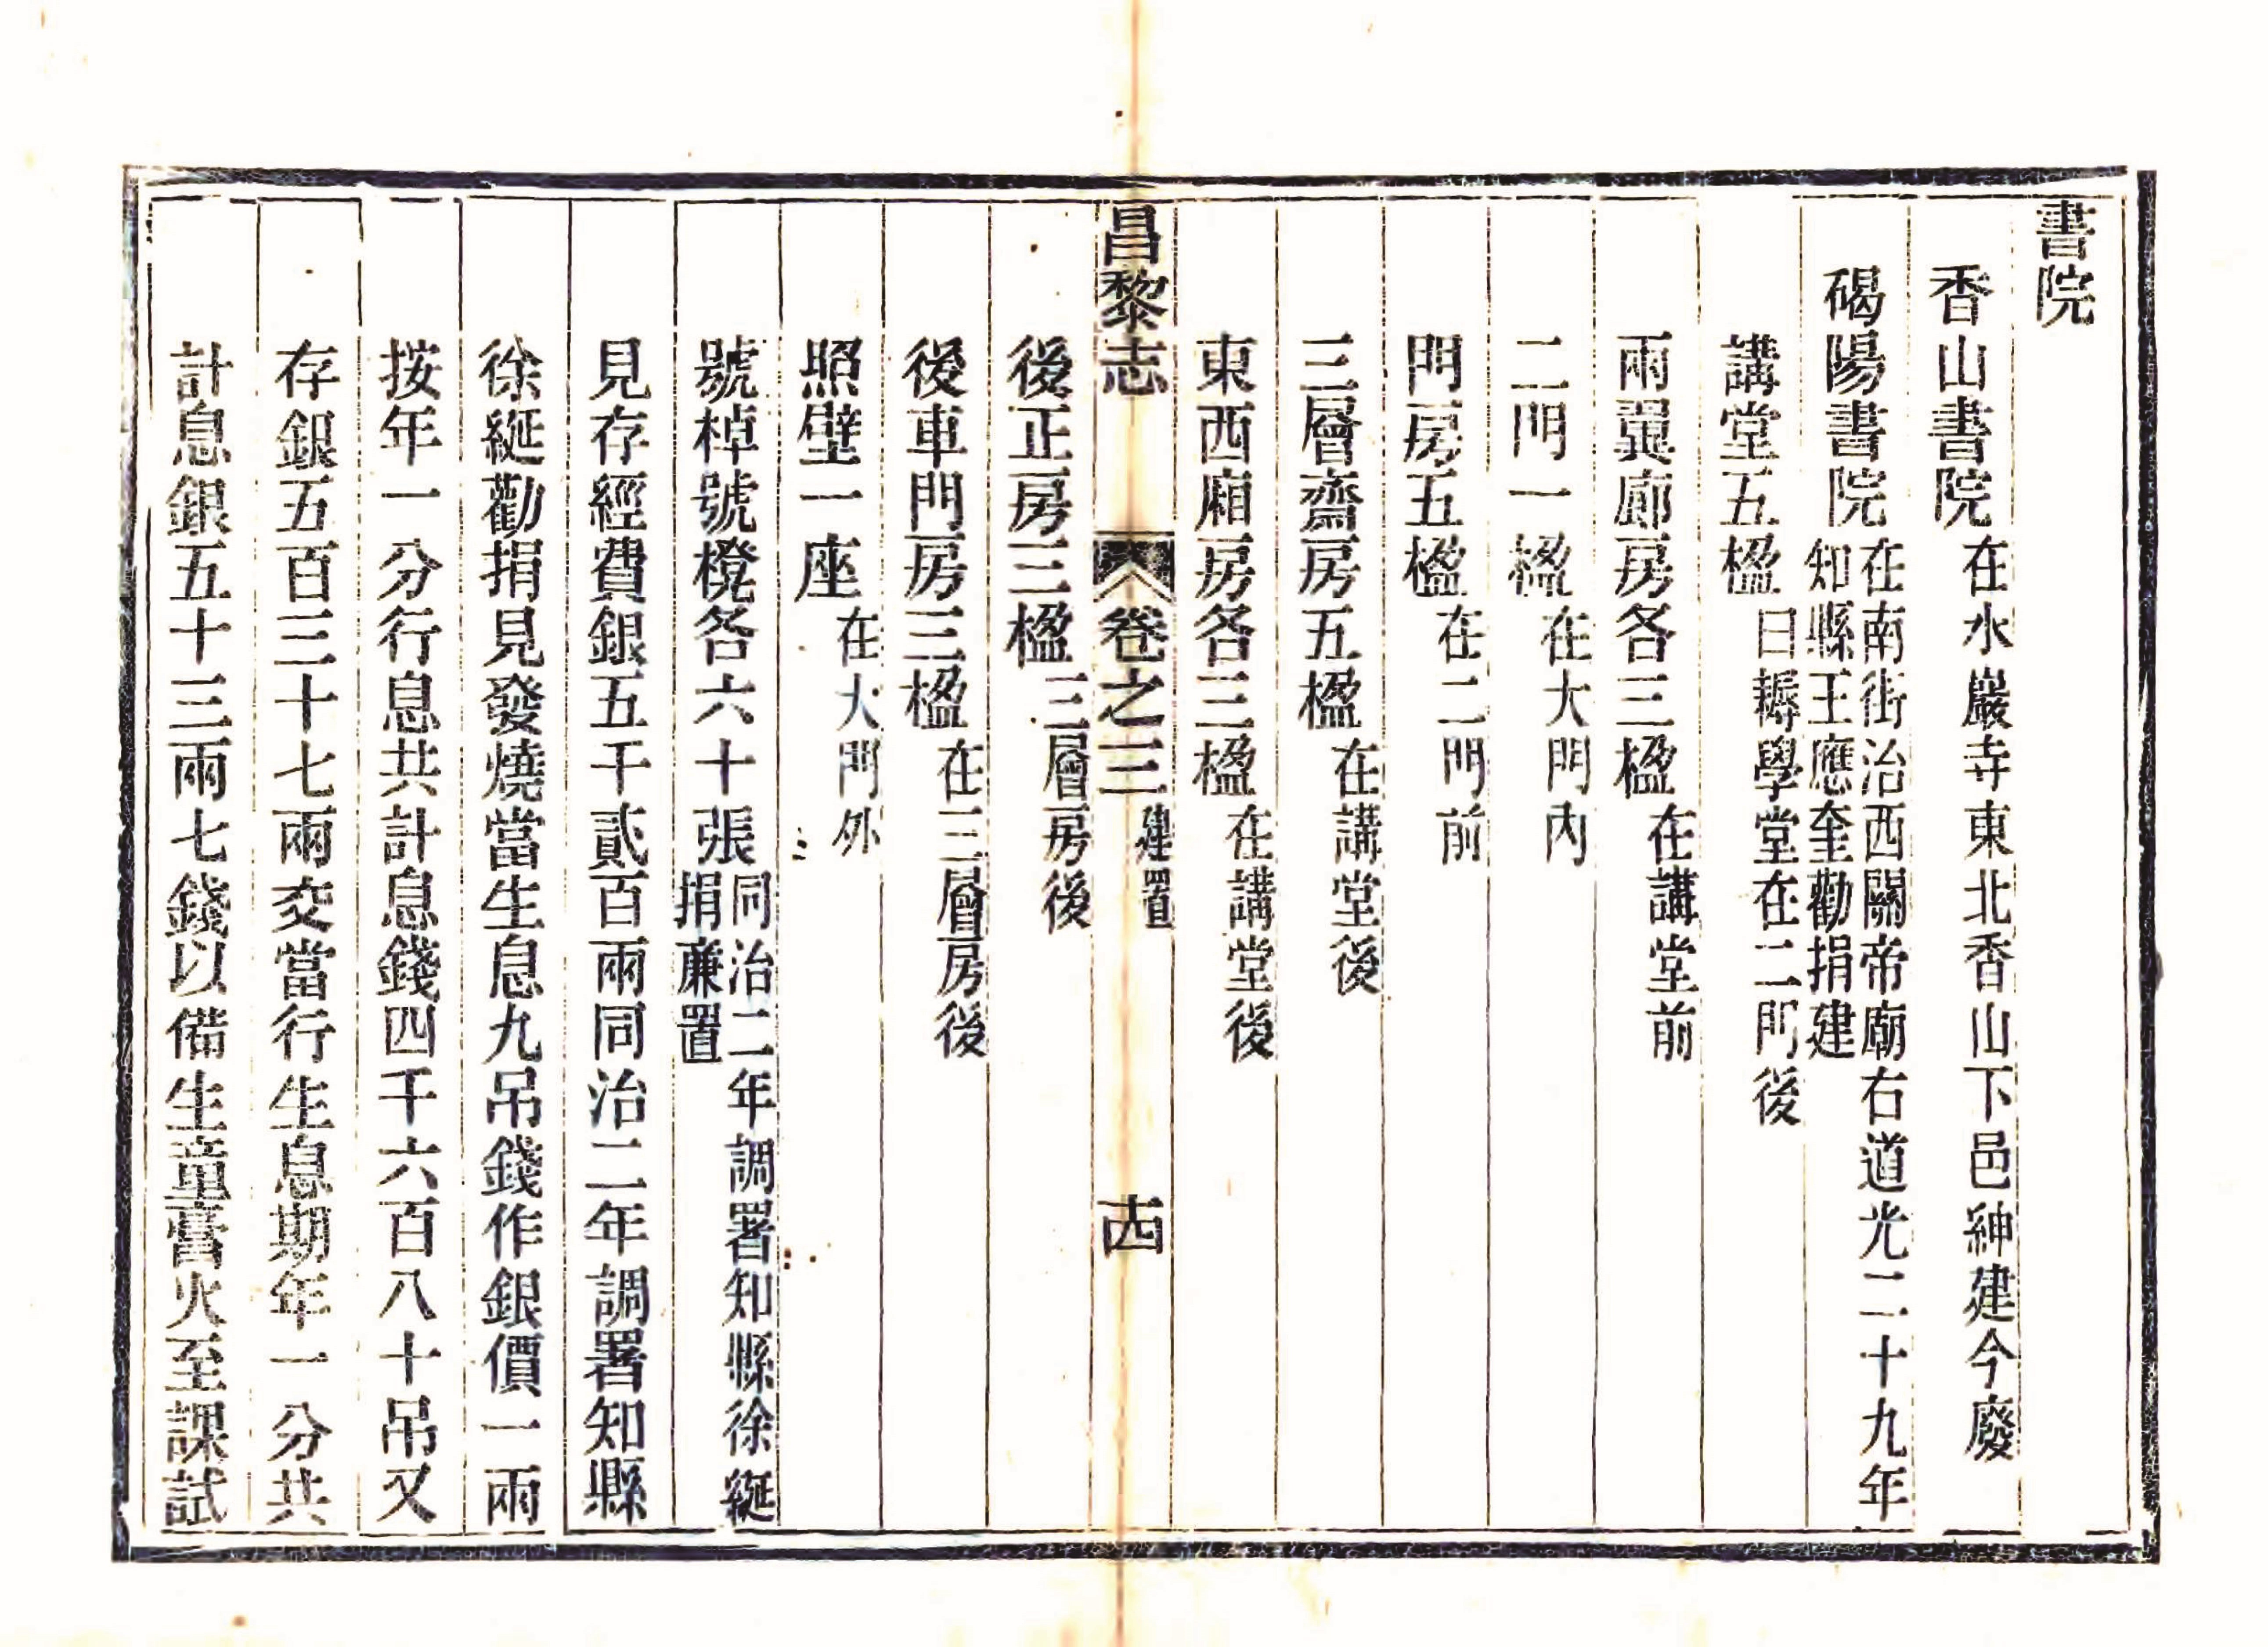 書院
香山書院在水巖寺東北香山下邑紳建今廢
碣陽書院在南街治西關帝廟右道光二十九年
知縣王應奎勸捐建
講堂五楹曰耨學堂在二門後
兩翼廊房各三楹在講堂前
二門一楹在大門內
門房五楹在二門前
三層齋房五楹在講堂後
東西廂房各三楹在講堂後
昌黎志 卷之三 建置 十四
後正房三楹三層房後
後車門房三楹在三層房後
照壁一座在大門外
號棹號櫈各六十張同治二年調署知縣徐綖
捐廉置
見存經費銀五千貳百兩同治二年調署知縣
徐綖勸捐見發燒當生息九吊錢作銀價一兩
按年一分行息共計息錢四千六百八十吊又
存銀五百三十七兩交當行生息期年一分共
計息銀五十三兩七錢以備生童膏火至課試